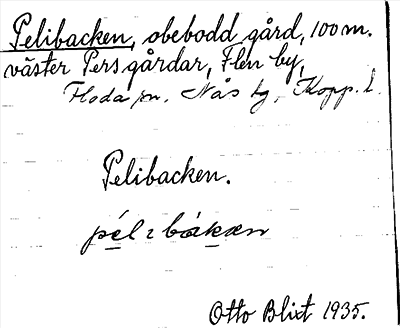 Pelibacken, obebodd gård, 100 m.
väster Persgårdar, Flen by,
Floda sn. Nås tg, Kopp. l.
Pelibacken.
pél2bákæn
Otto Blixt 1935.